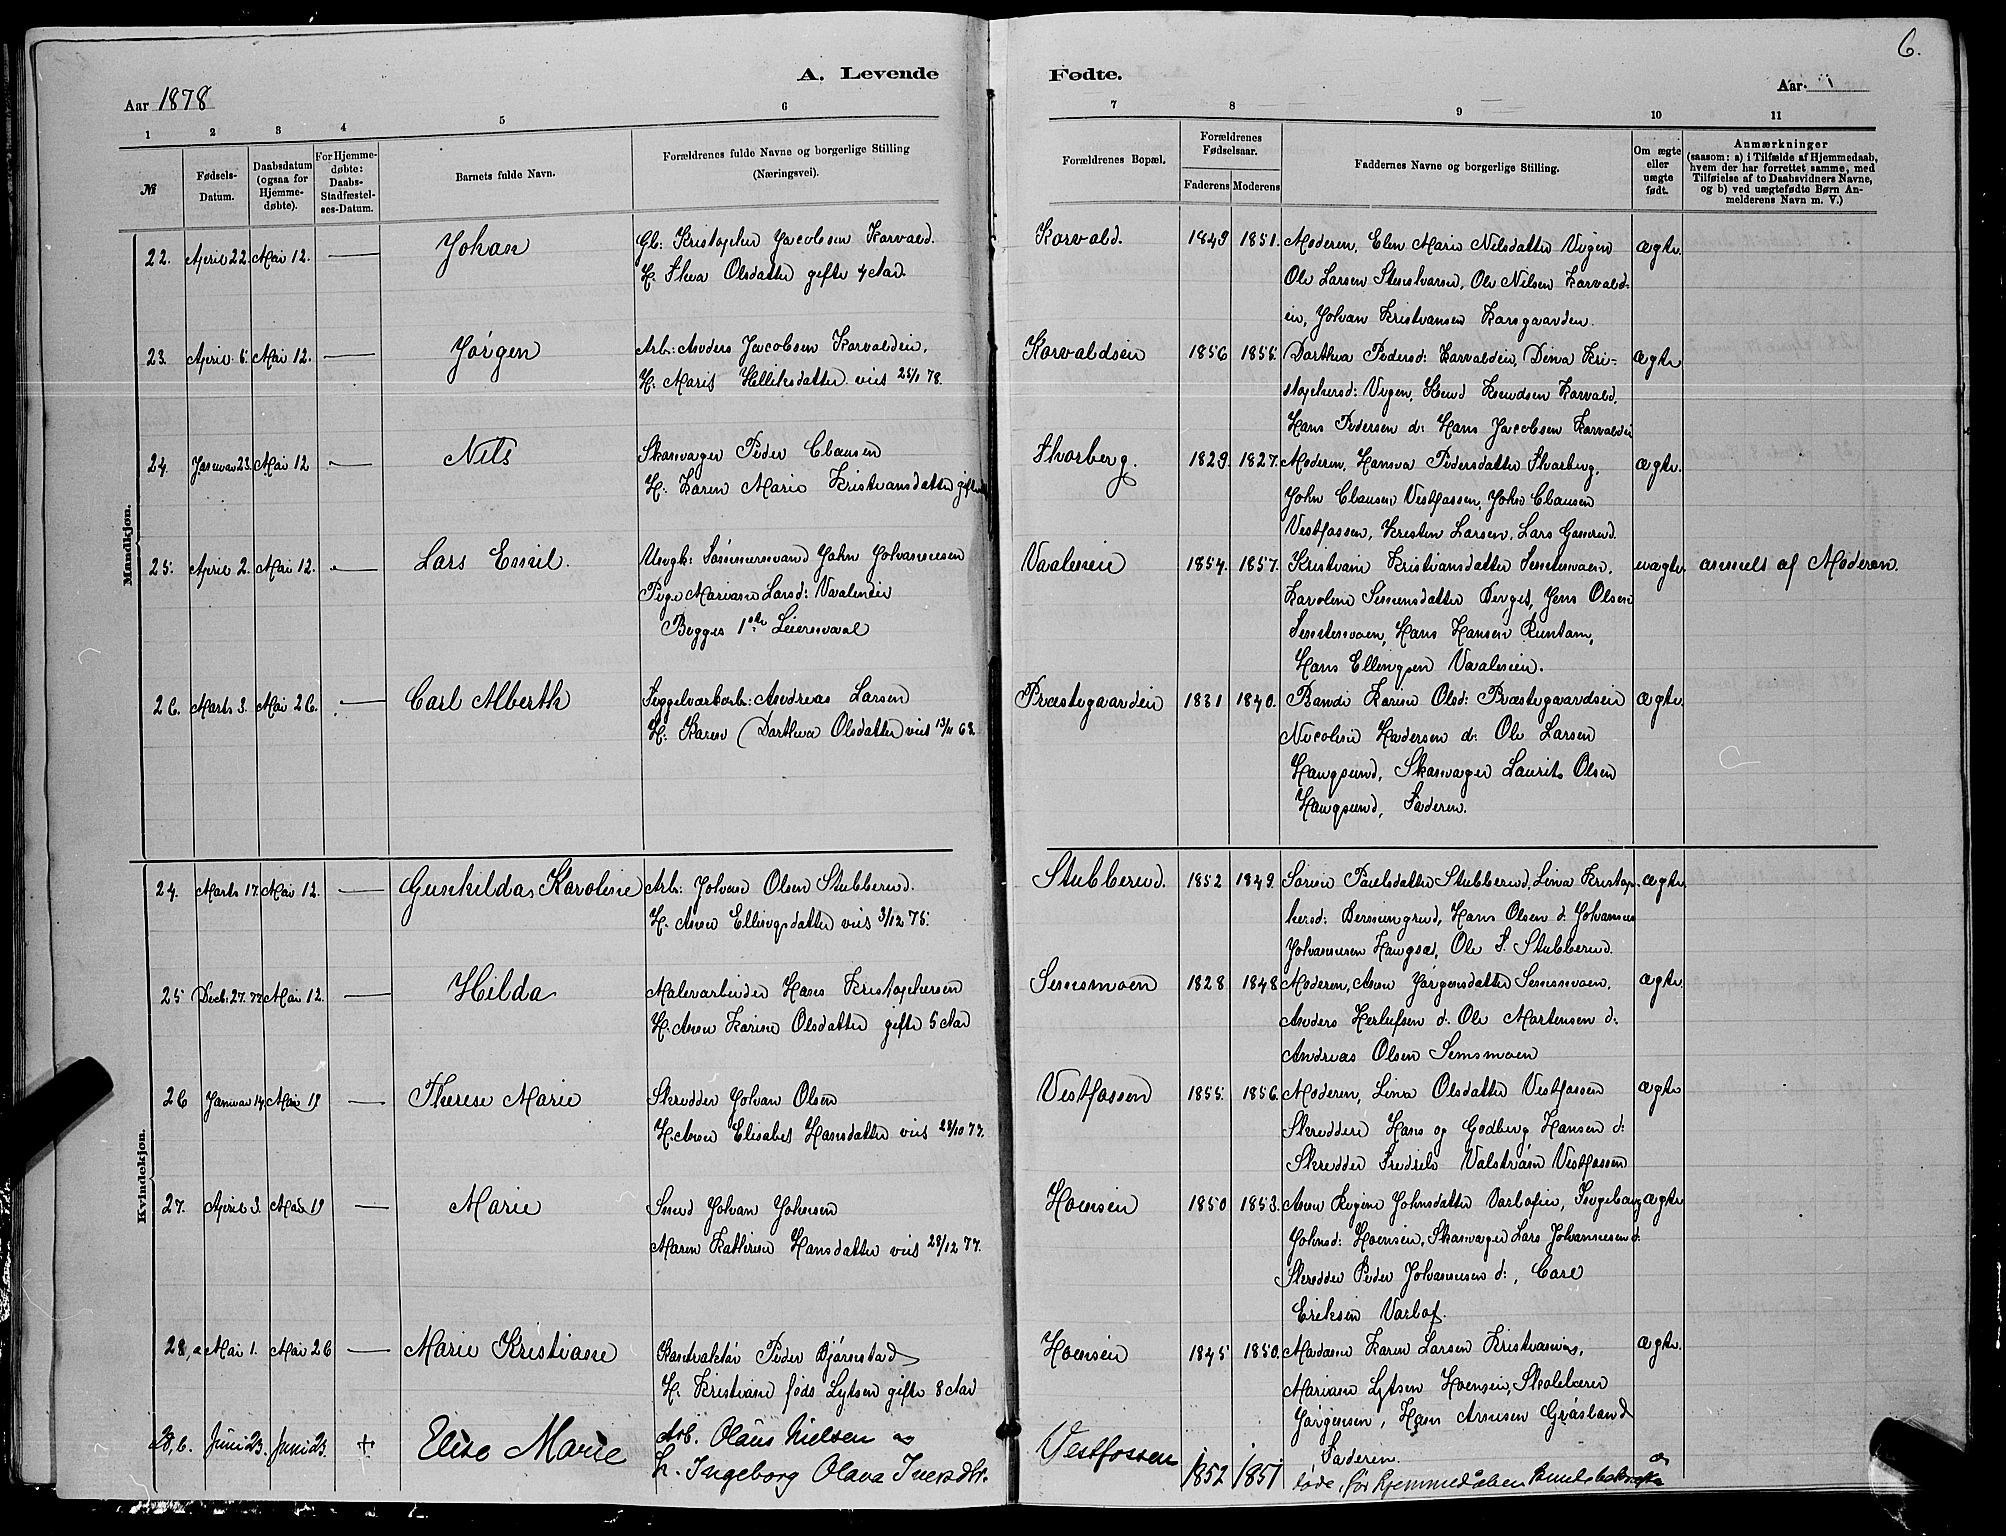 6.
A. Levende Fødte.
Aar 1878
Aar
1 2 3 4 5 6 7 8 9 10 11
№
Fødsels-Datum.
Daabsdatum (ogsaa for Hjemme-døbte).
For Hjemme-døbte: Daabs-Stadfæstel-ses-Datum.
Barnets fulde Navn.
Forældrenes fulde Navne og borgerlige Stilling (Næringsvei).
Forældrenes Bopæl.
Forældrenes Fødselsaar.
Faderens Moderens
Faddernes Navne og borgerlige Stilling.
Om ægte eller uægte født.
Anmærkninger
(saasom: a) i Tilfælde af Hjemmedaab,
hvem der har forrettet samme, med
Tilføielse af to Daabsvidners Navne,
og b) ved uægtefødte Børn An-
melderens Navn m. V.)
Mandkjøn.
22. April 22. Mai 12. — Johan
Gb: Kristopher Jacobsen Korvald.
H. Thea Olsdatter gifte 4 Aar.
Korvald. 1849 1851.
Moderen, Elen Marie Nilsdatter Vigen
Ole Larsen, Ole Nilsen Korvald-
ein, Johan Kristiansen Korsgaarden.
ægte.
23. April 6. Mai 12. — Jørgen
Arb: Anders Jacobsen Korvaldein,
H: Maris Helliksdatter viet 25/1 78.
Korvaldsein 1856 1855.
Darthea Pedersd: Korvaldein, Dina Kri-
stophersd: Vigen, Knud Knudsen Korvald,
Hans Pedersen d: Hans Jacobsen Korvaldein
ægte
24. Januar 23. Mai 12 — Nils
Skomager Peder Clausen
H: Karen Marie Kristiansdatter gifte
Thorberg. 1829. 1827.
Moderen, Hansva Pedersdatter Thorberg,
John Clausen Vestfossen, John Clausen
Vestfossen, Kristen Larsen, Lars
ægte.
25. April 2. Mai 12. — Lars Emil.
Ungk: Tømmermand John Johannesen
Pige Mariane Larsd: Vaalenein
Begges 1ste Leiermaal
Vaalenein 1854. 1857.
Kristiane Kristiansdatter Semsmoen,
Karoline Simensdatter Berget, Jens Olsen
Semsmoen, Hans Hansen Runtom,
Hans Ellingsen Vaalenein.
uægte
anmelt af Moderen.
26. Marts 3. Mai 26. — Carl Alberth
Teggelværkarb: Andreas Larsen
H: Karen Darthea Olsdatter viet 13/11 68
Præstegaardein 1831 1840.
Bandi Karine Olsd: Præstegaardsein
Nicoline Hadersen d: Ole Larsen
Haugsund, Skomager Laurits Olsen
Haugsund, Faderen.
ægte.
Kvindekjøn.
24. Marts 17. Mai 12. — Gunhilda Karoline
Arb: Johan Olsen Stubberud.
H. Anne Ellingsdatter viet 3/12 75.
Stubberud. 1852 1849.
Sørine Paulsdatter Stubberud, Lina Kristop-
hersd:, Hans Olsen d: Johannes
Johannesen Haugsæt, Ole T. Stubberud.
ægte.
25 Decb: 27. 77 Mai 12. — Hilda
Malerarbeider Hans Kristophersen
H. Anne Karine Olsdatter gifte 5 Aar
Semsmoen 1828 1848
Moderen, Anne Jørgensdatter Semsmoen,
Anders Herlufsen d: Ole Martensen d:
Andreas Olsen Semsmoen
ægte.
26 Januar 14. Mai 19 — Therese Marie
Skredder Johan Olsen
H: Anne Elisabet Hansdatter viet 28/10 77.
Vestfossen 1855. 1856.
Moderen, Lina Olsdatter Vestfossen
Skreddere Hans og Godberg Hansen d:
Skredder Fredrik Valstrøm Vestfossen
ægte
27. April 3. Mai 19 — Marie
Smed Johan Johnsen
Maren Kathrine Hansdatter viet 28/12 77.
Hoensein 1850 1853.
Anne Regine Johnsdatter Varlofein, Ingeborg
Johnsd: Hoensein, Skomager Lars Johannesen d:
Skredder Peder Johannesen d:, Carl
Eriksen Varlof.
ægte
28, a Mai 1. Mai 26 — Marie Kristiane
Kontraktør Peder Bjørnstad
H. Kristiane føds Lytsen gifte 8 Aar
Hoensein 1845 1850.
Madame Karen Larsen Kristiania,
Mariane Lytsen Hoensein, Skolelærer
Jørgensen, Hans Arnesen Gråsland
Faderen.
ægte.
28, b. Juni 23. Juni 23. ✝ Elise Marie
Arb. Olaus Nielsen og
H. Ingeborg Olava Iversdtr.
Vestfossen 1852 1851
døde, før Hjemmedåben kunde bekræftes